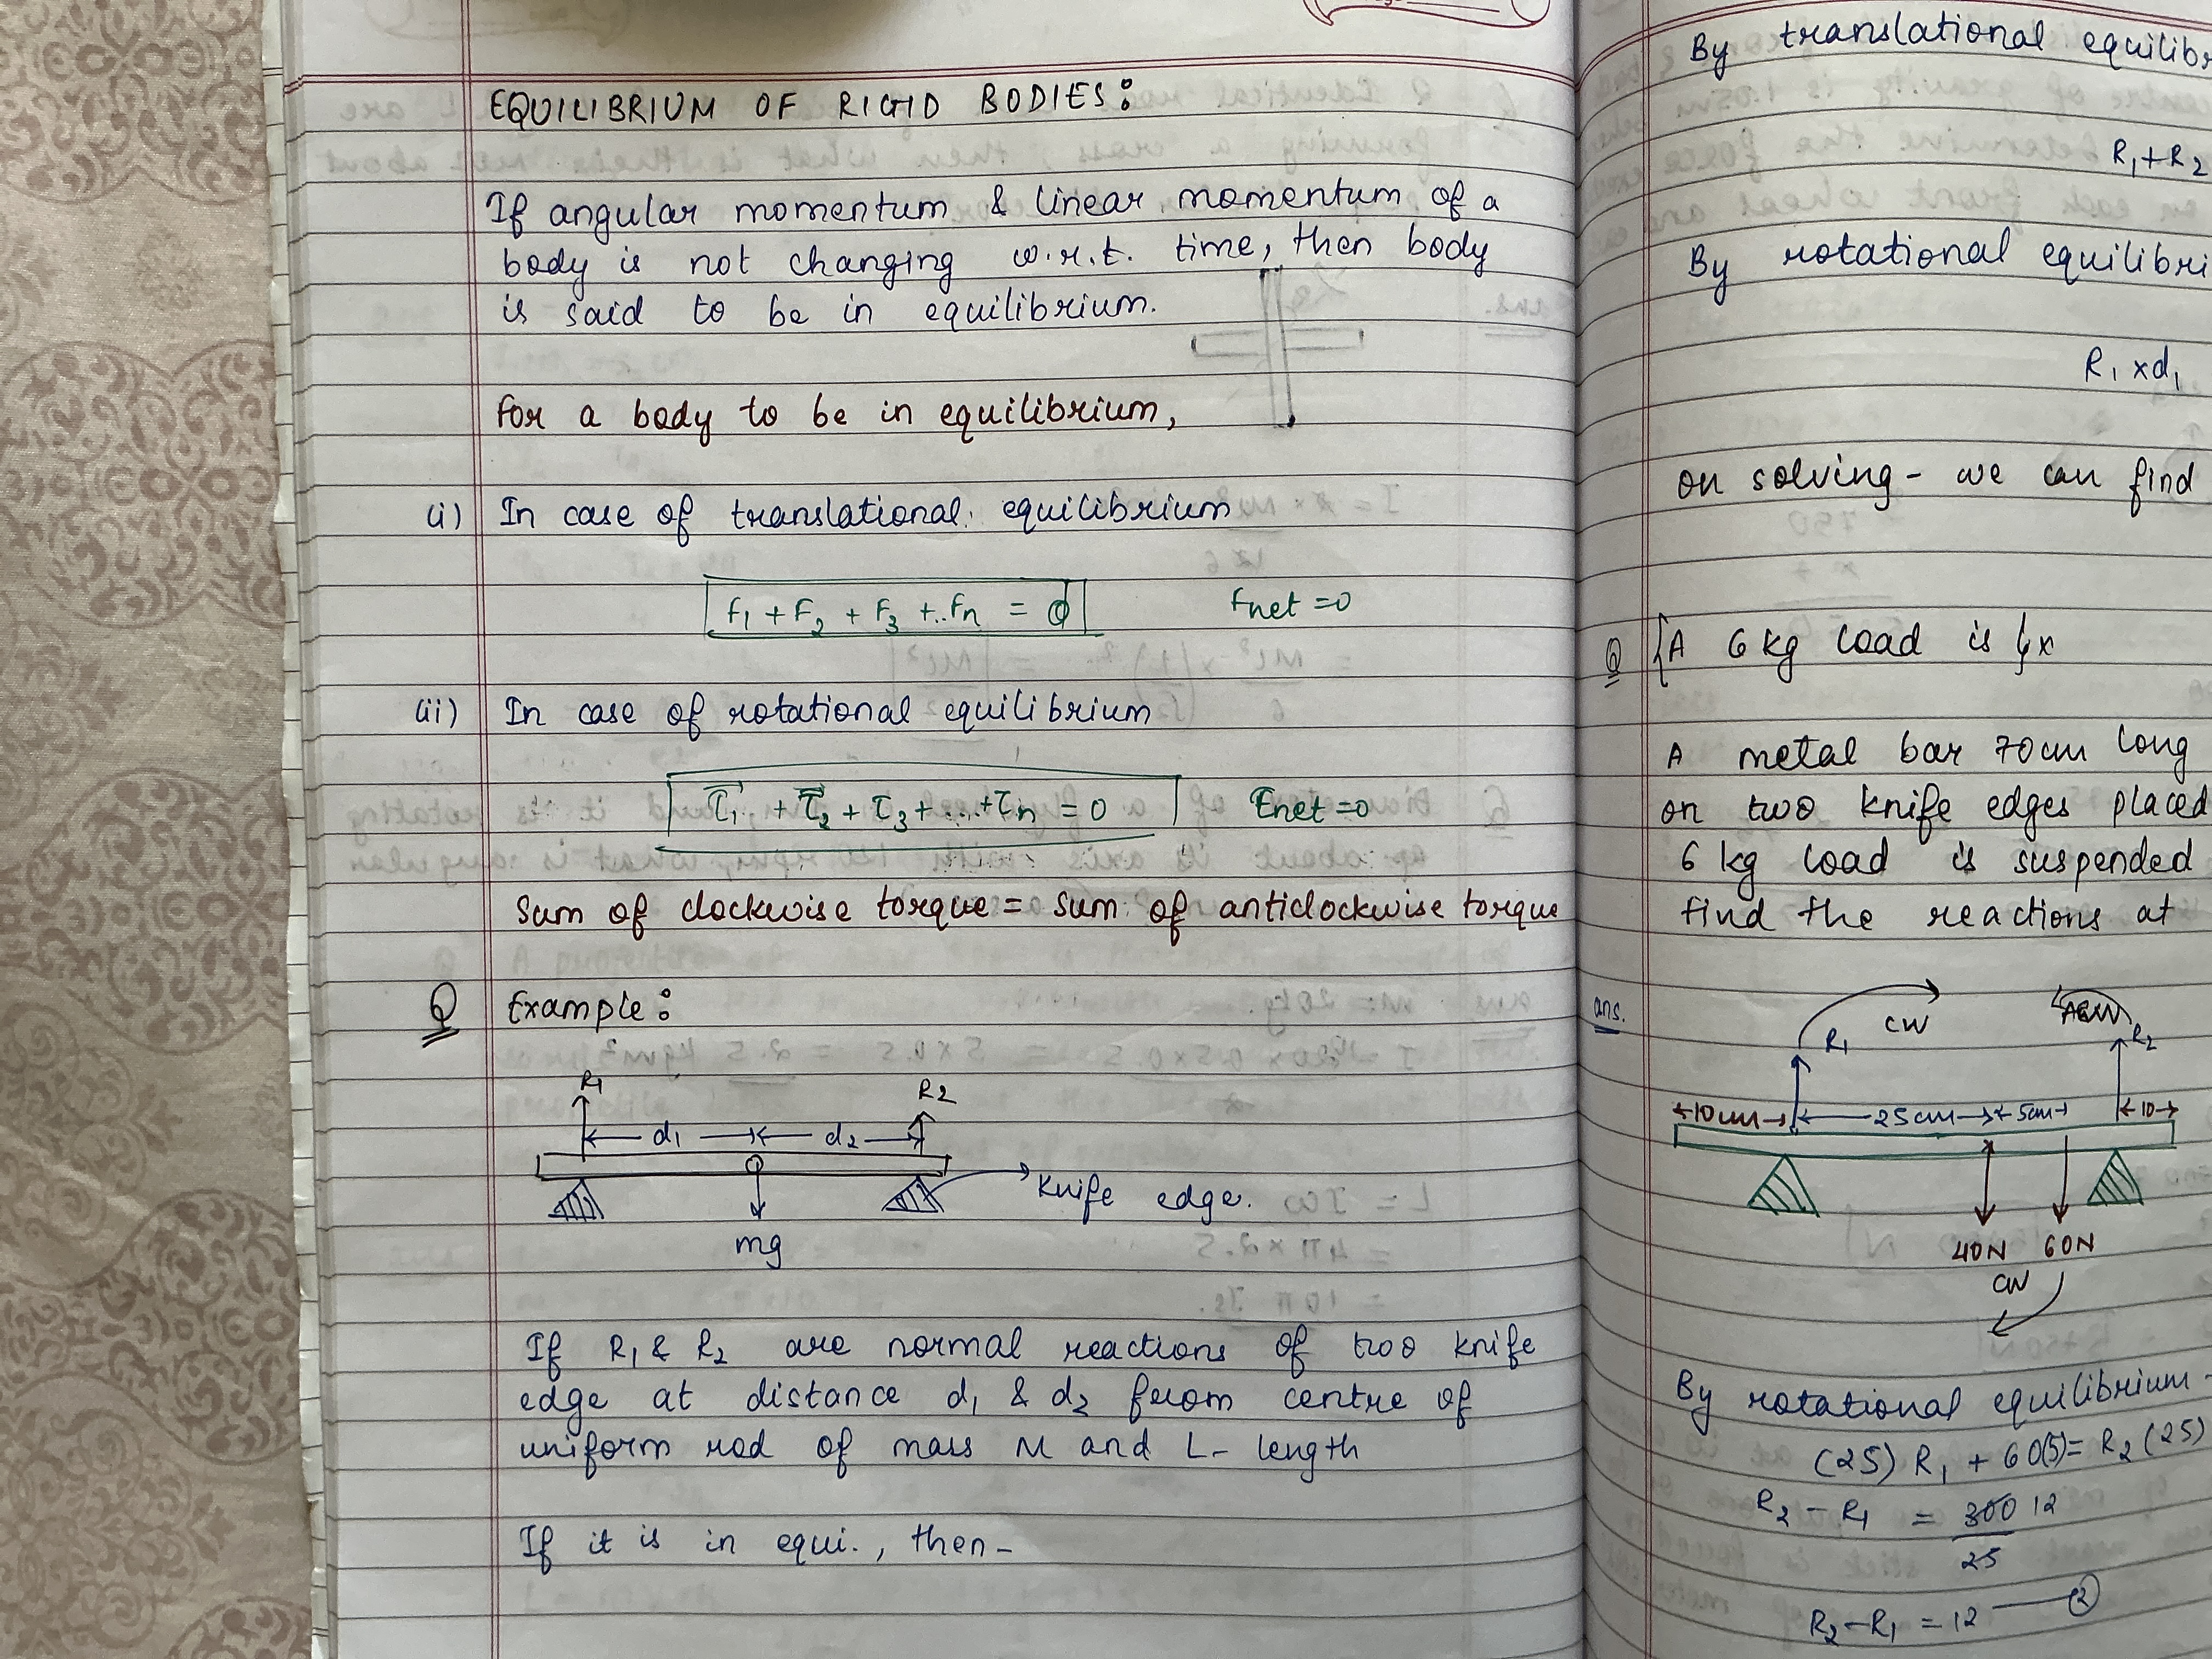 EQUILIBRIUM OF RIGID BODIES:
If angular momentum & linear momentum of a
body is not changing w.r.t. time, then body
is said to be in equilibrium.
for a body to be in equilibrium,
(i) In case of translational equilibrium
F1 + F2 + F3 + ..Fn = 0 Fnet = 0
(ii) In case of rotational equilibrium
τ⃗1 + τ⃗2 + τ3 + ... + τn = 0 τnet = 0
Sum of clockwise torque = Sum of anticlockwise torque
Q Example:
R1 R2
d1 d2
Knife edge.
mg
If R1 & R2 are normal reactions of two knife
edge at distance d1 & d2 from centre of
uniform rod of mass M and L- length
If it is in equi., then-
By translational
R1+R2
By rotational
R1 xd1
on solving - we can find
Q A 6 kg load is x
A metal bar 70cm long
on two knife edges placed
6 kg load is suspended
find the reactions at
ans.
CW ACW
R1 R2
10cm 25cm 5cm 10
40N 60N
CW
By rotational equilibrium-
(25) R1 + 60(5) = R2 (25)
R2 - R1 = 300 12
25
R2-R1 = 12 — 2